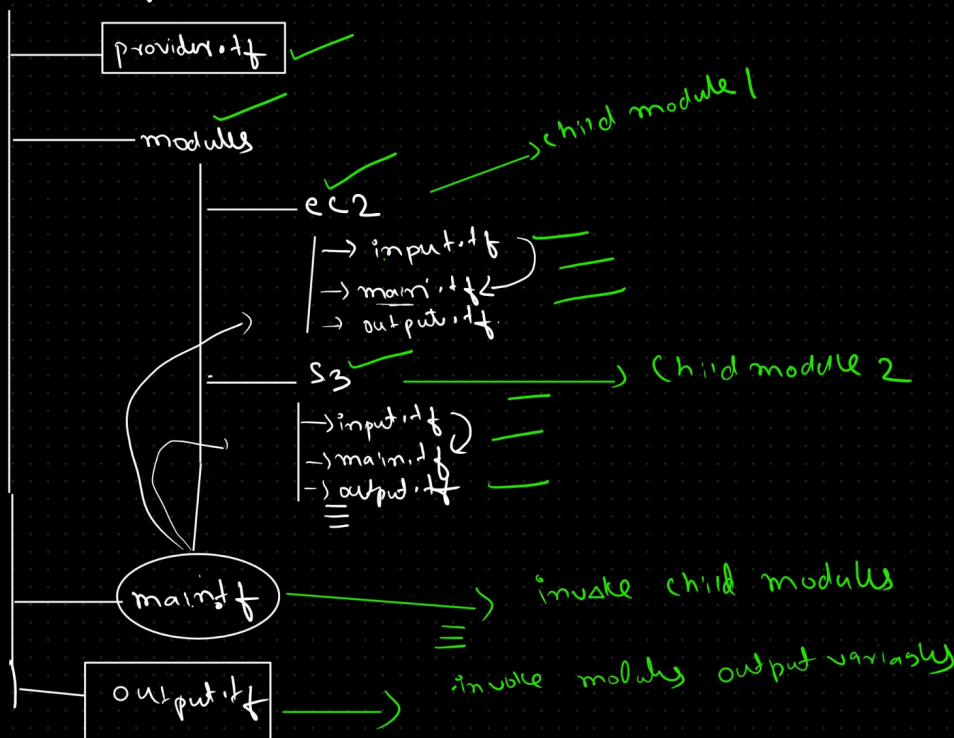 provider.tf
modules
child module 1
ec2
→ input.tf
→ main.tf
→ output.tf.
S3
child module 2
→ input.tf
→ main.tf
→ output.tf
main.tf
invoke child modules
output.tf
invoke modules output variables